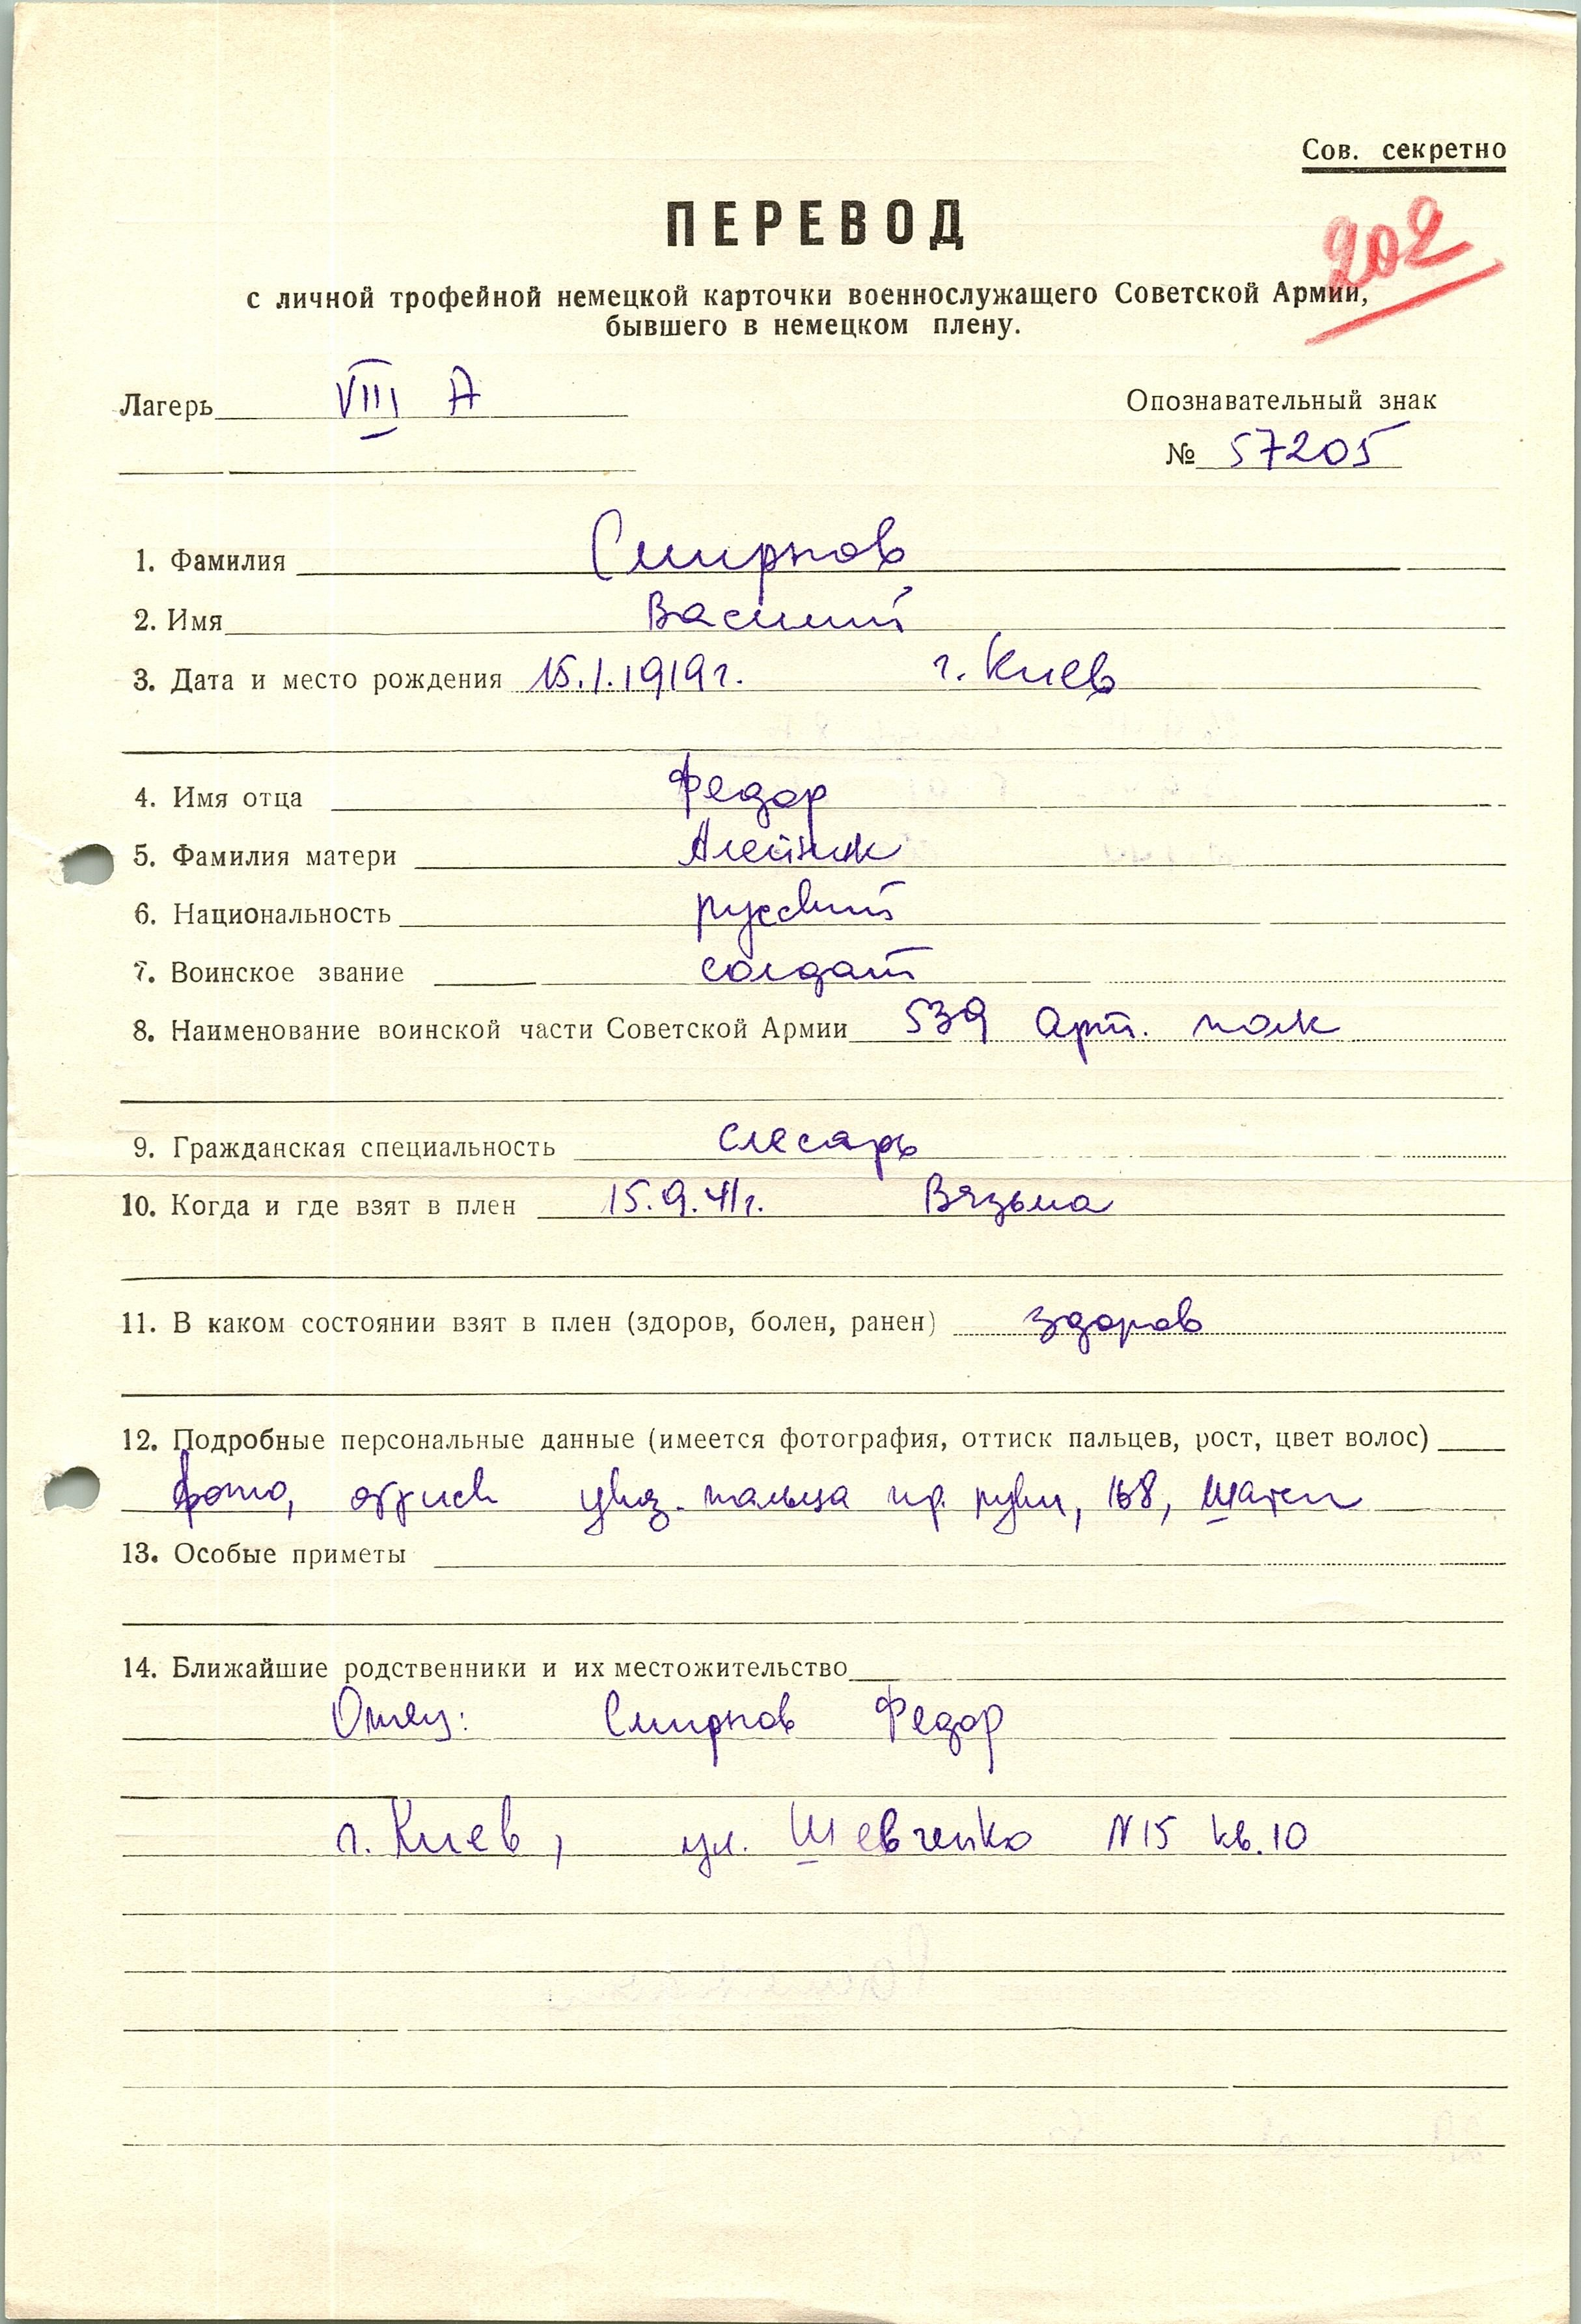 Сов. секретно
ПЕРЕВОД
202
с личной трофейной немецкой карточки военнослужащего Советской Армии,
бывшего в немецком плену.
Лагерь VIII А
Опознавательный знак
№ 57205
1. Фамилия Смирнов
2. Имя Василий
3. Дата и место рождения 15.1.1919г. г. Киев
4. Имя отца Федор
5. Фамилия матери Алейник
6. Национальность русский
7. Воинское звание солдат
8. Наименование воинской части Советской Армии 539 арт. полк
9. Гражданская специальность слесарь
10. Когда и где взят в плен 15.9.41г. Вязьма
11. В каком состоянии взят в плен (здоров, болен, ранен) здоров
12. Подробные персональные данные (имеется фотография, оттиск пальцев, рост, цвет волос)
фото, оттиск указ. пальца пр. руки, 168, шатен
13. Особые приметы
14. Ближайшие родственники и их местожительство
Отец: Смирнов Федор
г. Киев, ул. Шевченко N15 кв. 10